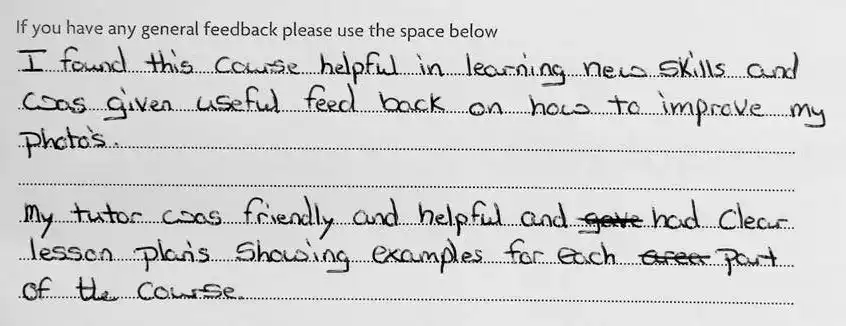 If you have any general feedback please use the space below
I found this course helpful in learning new skills and
was given useful feed back on how to improve my
photo's.
My tutor was friendly and helpful and gave had clear
lesson plan's showing examples for each area part
of the course.